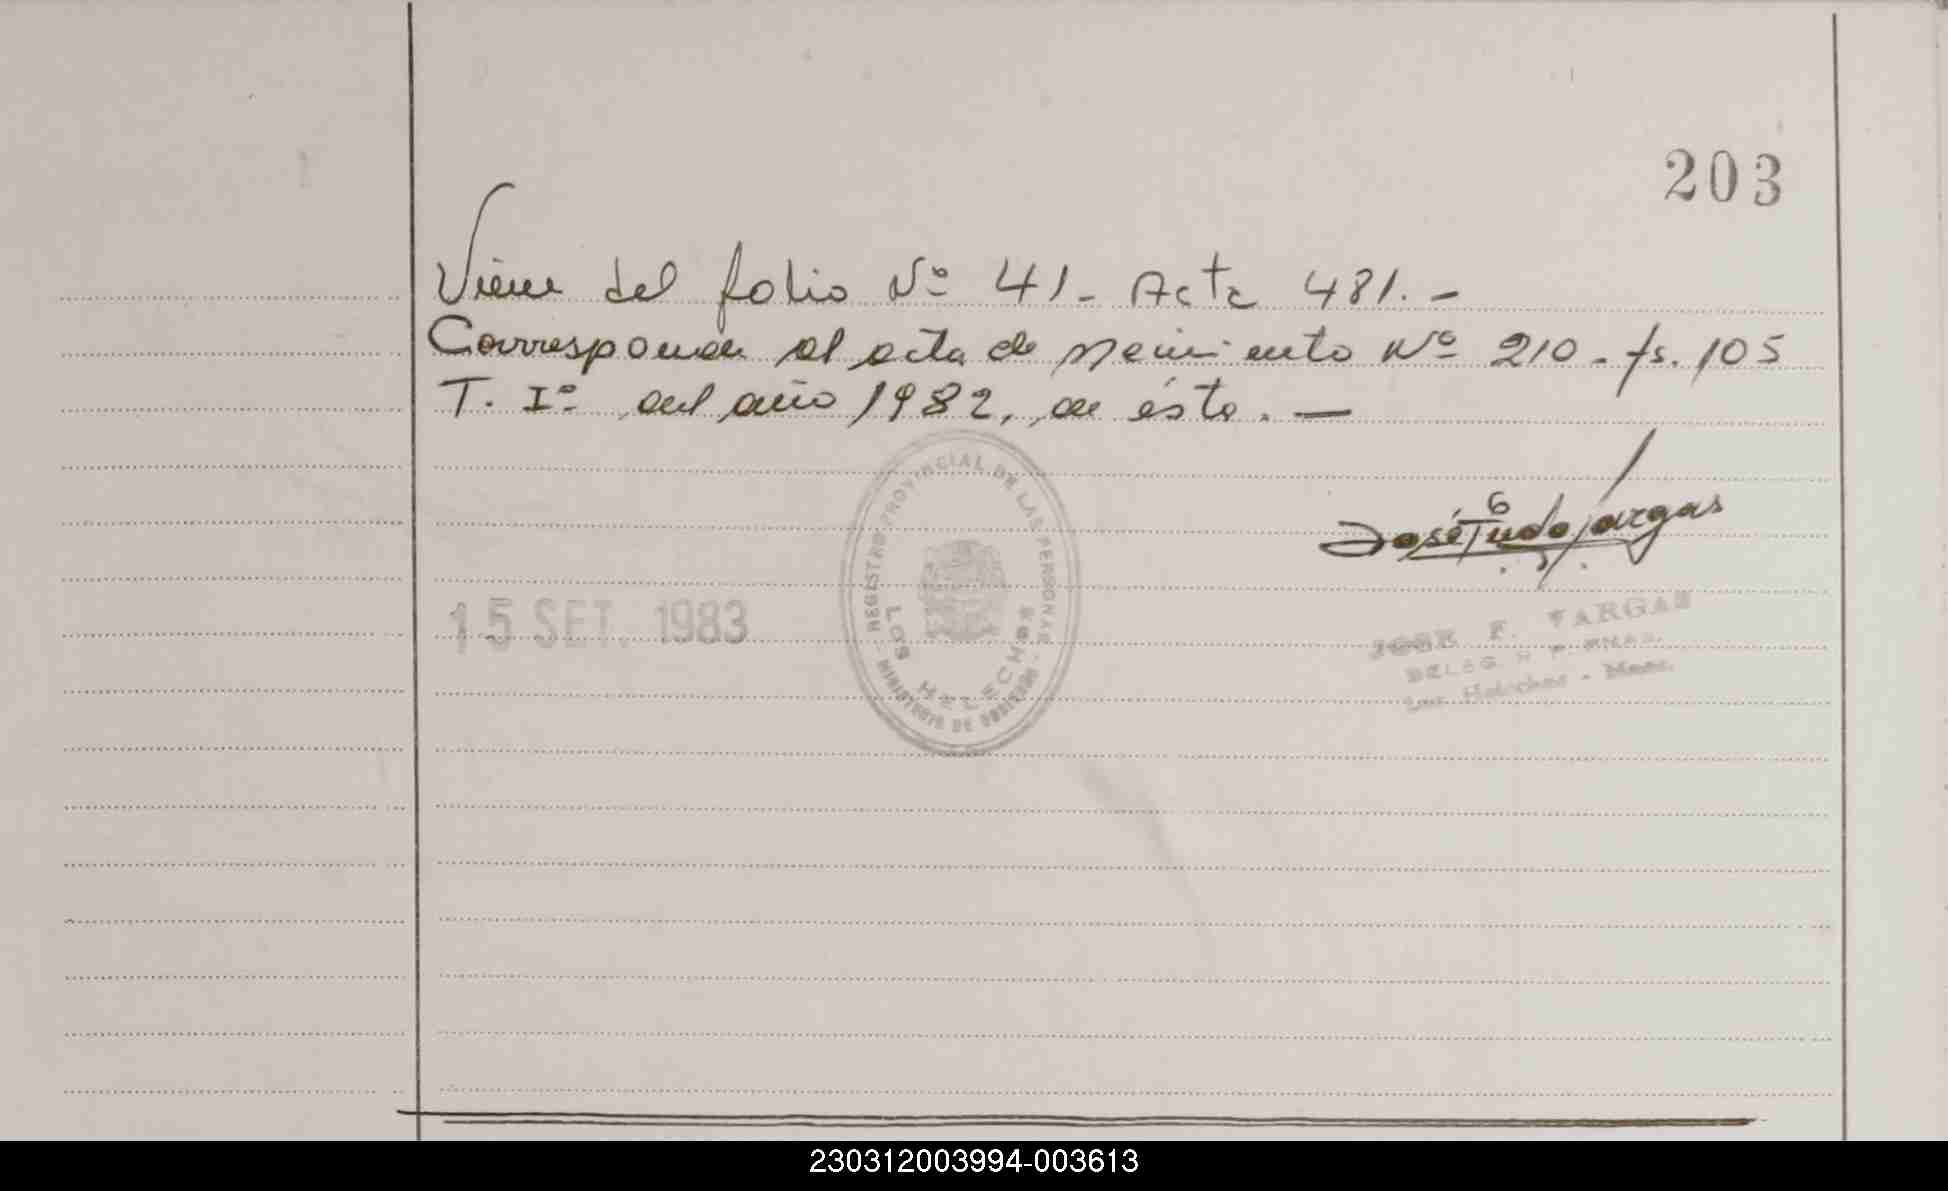 203
Viene del folio Nº 41.- Acta 481.-
Corresponde al acta de nacimiento Nº 210 - fs. 105
T. Iº del año 1982, de ésta. —
José Vargas
15 SET. 1983
REGISTRO PROVINCIAL DE LAS PERSONAS
LOS HELECHOS
- MINISTERIO DE GOBIERNO -
JOSE F. VARGAS
DELEG. R. P. PNAS.
Los Helechos - Mnes.
230312003994-003613